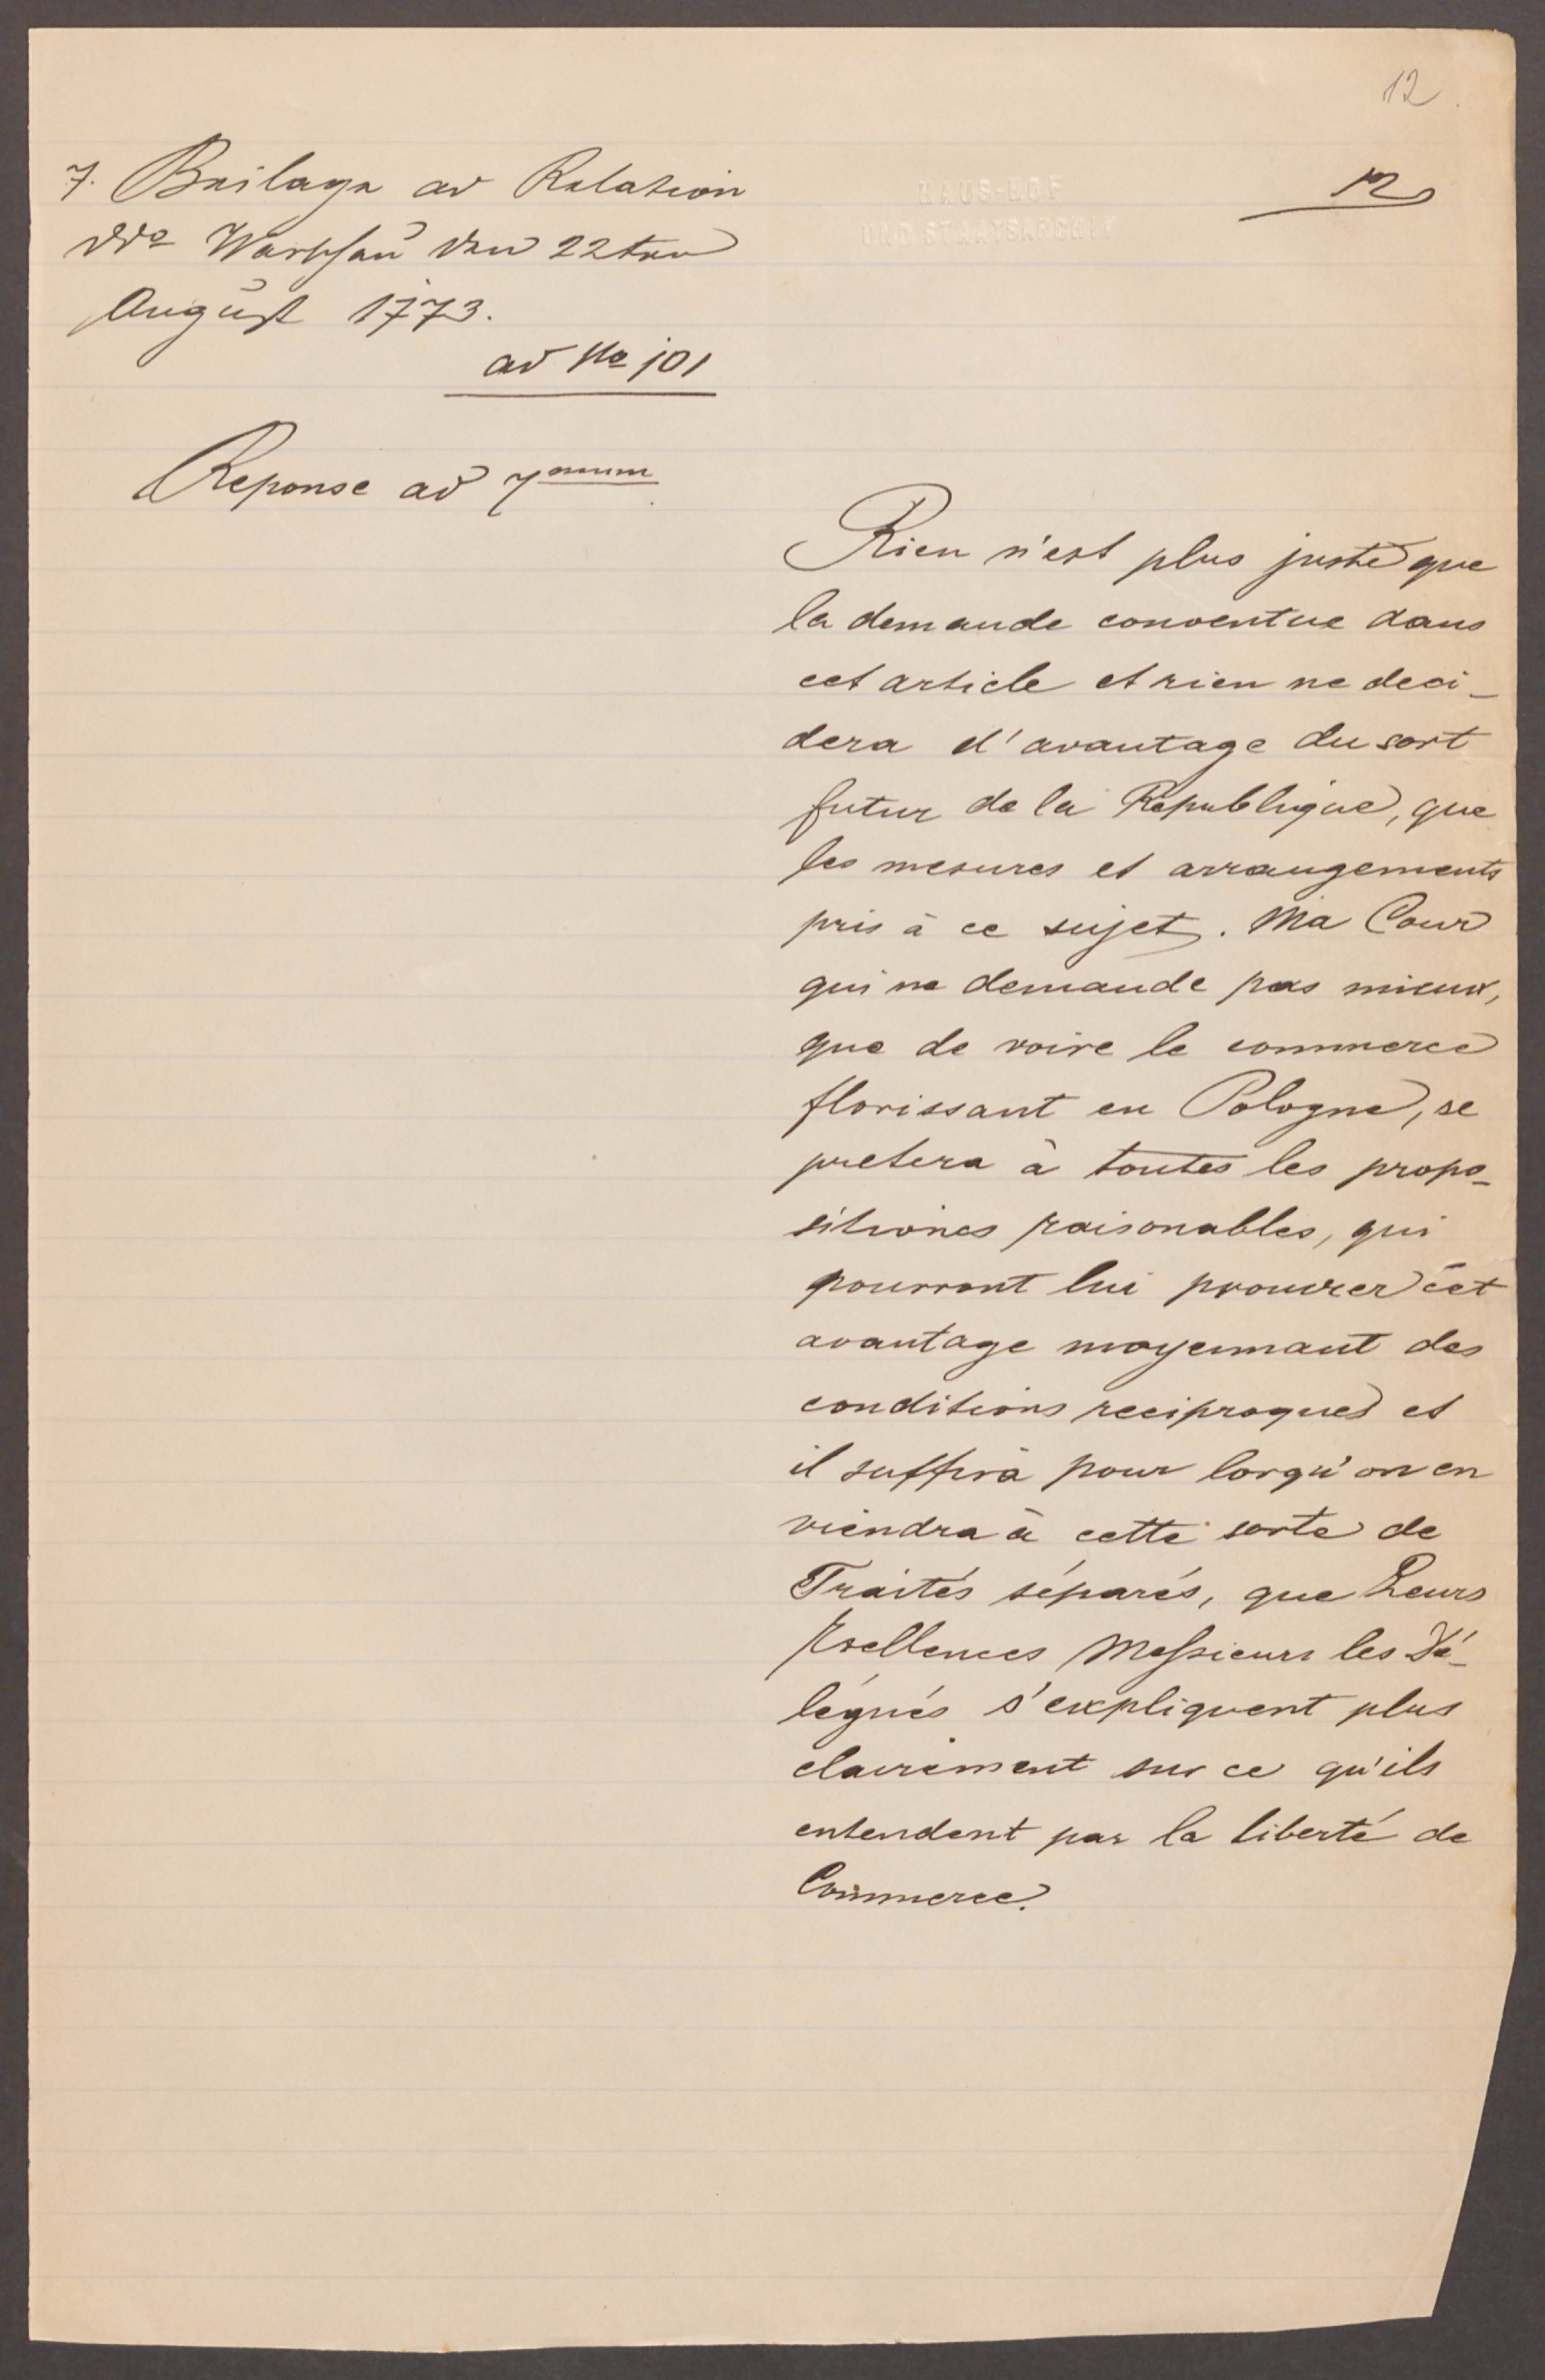 12.
12
7. Beilage ad Relation
ddo Warschau den 22ten
August 1773.
ad No 101
HAUS-HOF
UND STAATSARCHIV
Reponse ad 7mum
Rien n'est plus juste que
la demande conventue dans
cet article et rien ne deci-
dera d'avantage du sort
futur de la Republique, que
les mesures et arrangements
pris à ce sujet. Ma Cour
qui ne demande pas mieux,
que de voire le commerce
florissant en Pologne, se
pretera à toutes les propo-
sitiones raisonables, qui
pourront lui procurer cet
avantage moyennant des
conditions reciproques et
il suffira pour lorqu'on en
viendra à cette sorte de
Traités séparés, que Leurs
Excellences Messieurs les Dé-
légués s'expliquent plus
clairement sur ce qu'ils
entendent par la liberté de
Commerce.